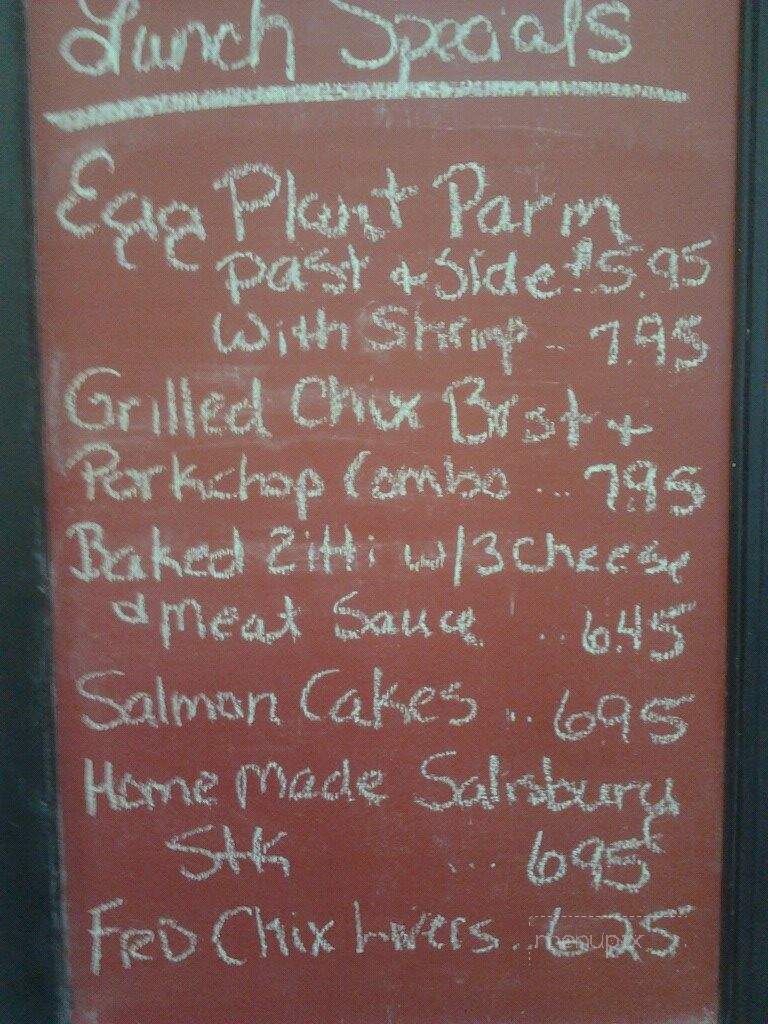 Lunch Specials
Egg Plant Parm
past & Side $5.95
with Shrimp .. 7.95
Grilled Chix Brst +
Porkchop Combo ... 7.95
Baked Zitti w/3 cheese
& meat Sauce .. 6.45
Salmon Cakes .. 695
Home made Salisbury
Stk ... 695
Fred Chix Livers .. 625
menupix